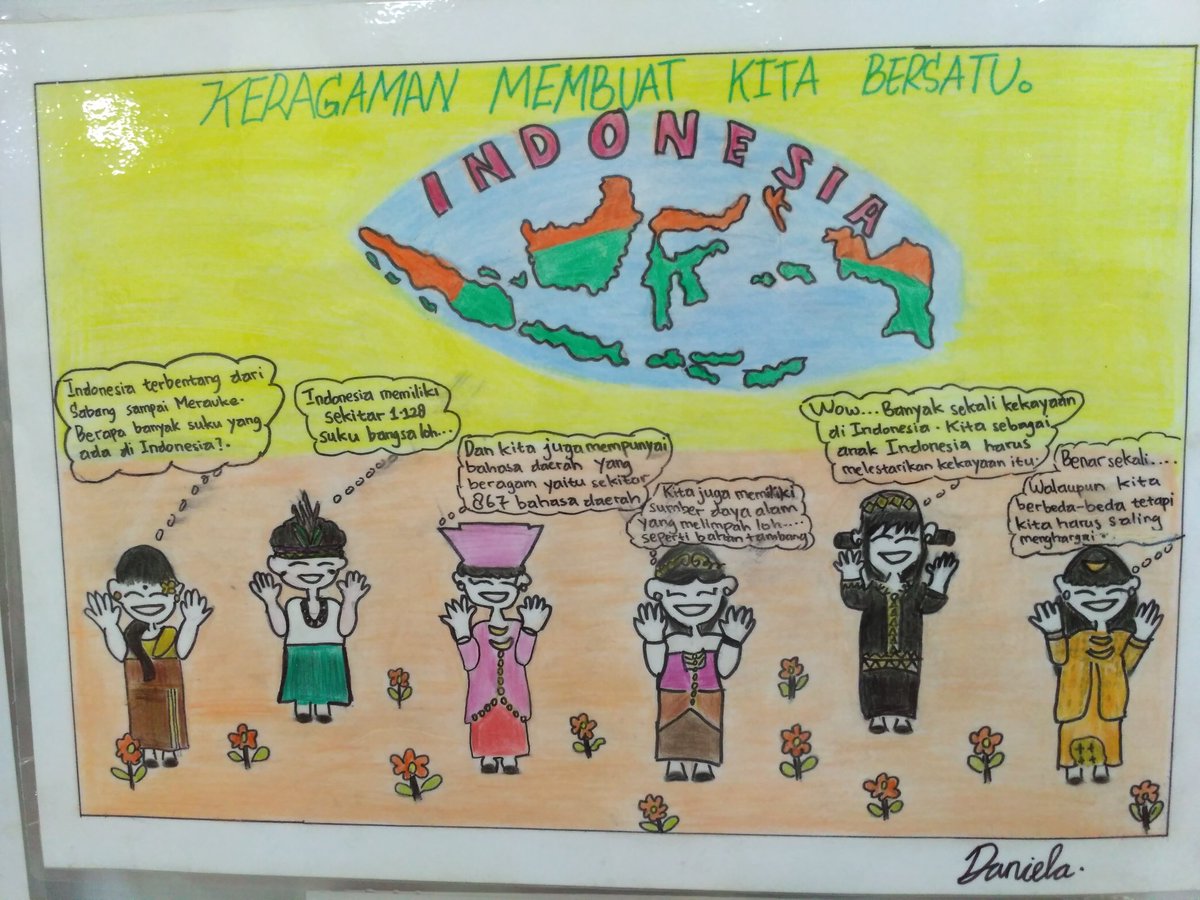 KERAGAMAN MEMBUAT KITA BERSATU.
INDONESIA
Indonesia terbentang dari
Sabang sampai Merauke.
Berapa banyak suku yang
ada di Indonesia?.
Indonesia memiliki
sekitar 1.128
suku bangsa loh...
Dan kita juga mempunyai
bahasa daerah yang
beragam yaitu sekitar
867 bahasa daerah
Kita juga memiliki
sumber daya alam
yang melimpah loh....
seperti bahan tambang
Wow... Banyak sekali kekayaan
di Indonesia. Kita sebagai
anak Indonesia harus
melestarikan kekayaan itu.
Benar sekali....
Walaupun kita
berbeda-beda tetapi
kita harus saling
menghargai..
Daniela.